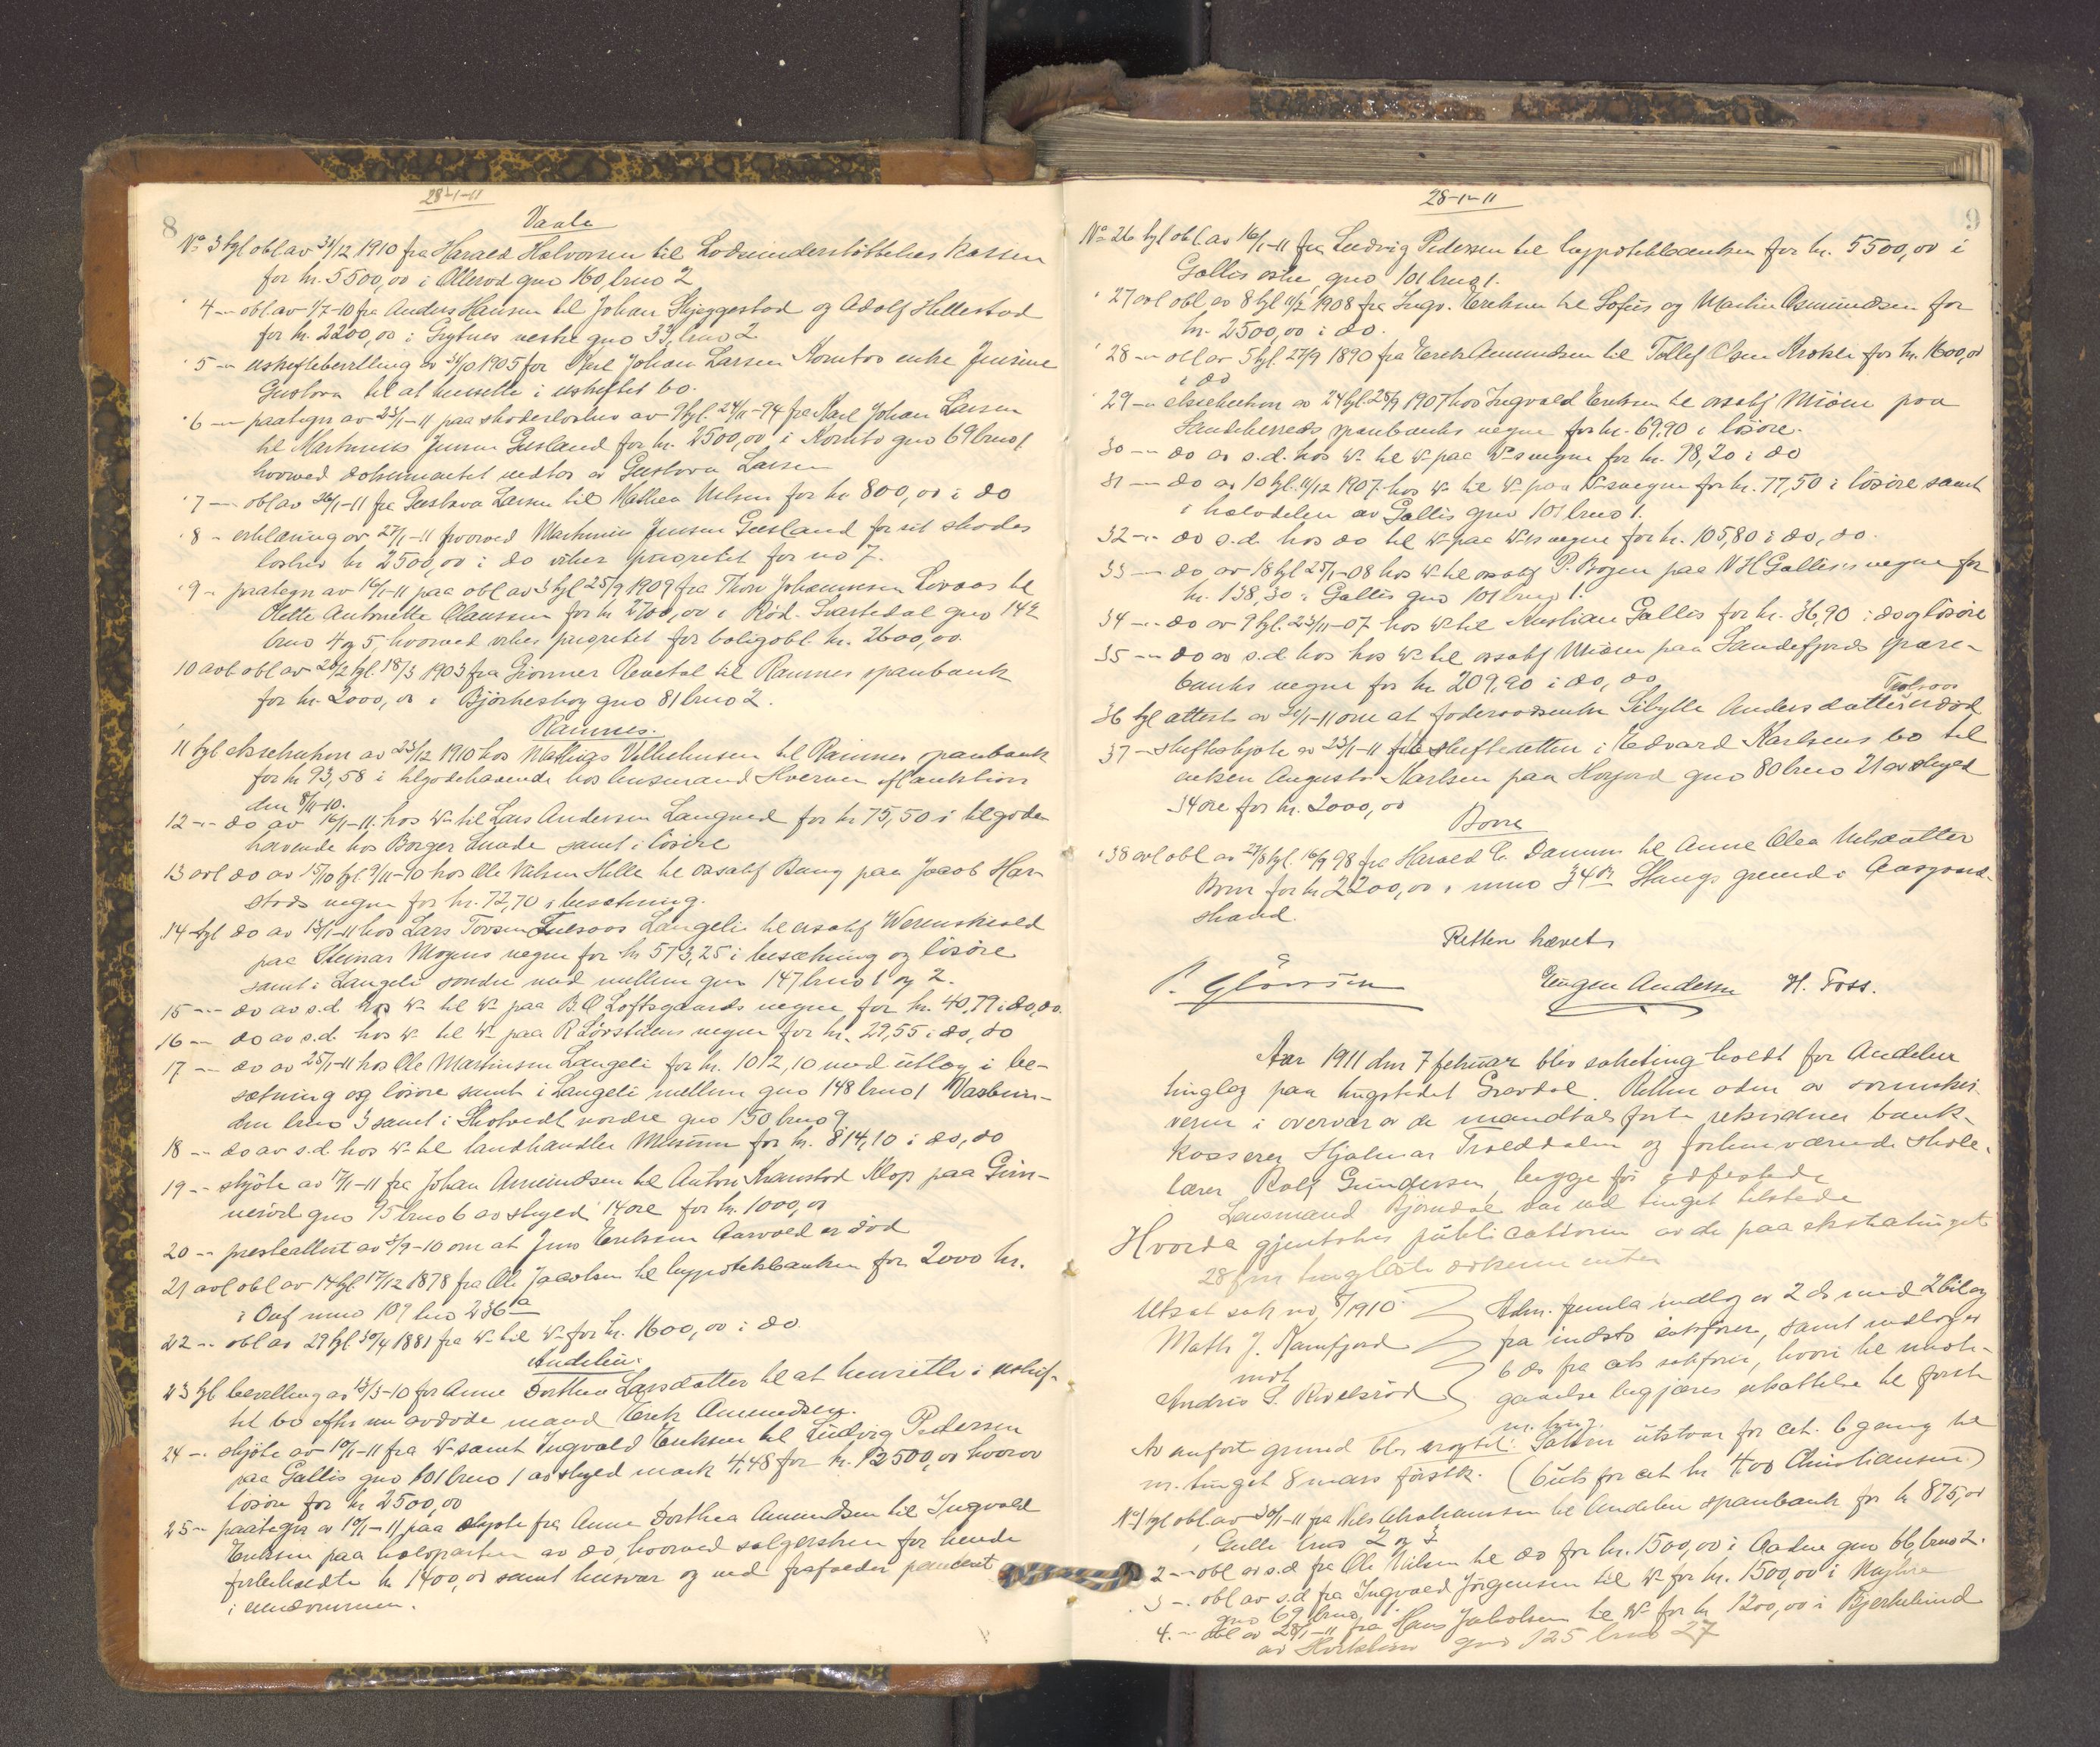 8
28-1-11
Vaale
No 3 tgl obl av 31/12 1910 fra Harald Halvorsen til Lodsunderstöttelses kassen
for kr. 5500,00 i Ollerød gno 160, bruno 2
4 - obl av 1/7-10 fra Anders Hansen til Johan Skjeggestad og Adolf Hillestad
for kr. 2200,00 i Grytnes vestre gno 33, bruno 2
5 - uskiftebevilling av 31/10 1905 for Karl Johan Larsen Komtvo enke Jensine
Gustava til at hensitte i uskiftet bo.
6 - paategn av 23/1-11 paa skadeslosbrev av 9 tgl. 24/11-94 fra Karl Johan Larsen
til Martinius Jensen Gusland for kr. 2500,00 i gno 69 bruno 1
hvorved dokumentet vedtas av Gustava Larsen
7 - obl av 26/1-11 fra Gustava Larsen til Mathea Nilsen for kr 800,00 i do
8 - erklæring av 27/1-11 hvorved Martinius Jensen Gusland for sit skades
losbrev kr 2500,00 i do viker prioritet for no 7.
9 - paategn av 16/1-11 paa obl av 3 tgl 25/9 1909 fra Thor Johannesen Lovaas til
Olette Antonette Olaussen for kr 2700,00 i Röd. Svartsdal gno 142
bruno 4 og 5, hvorved vikes prioritet for boligobl. kr. 2600,00.
10 avl obl av 28/2 tgl. 18/3 1903 fra Gionner Revetal til Ramnes sparebank
for kr. 2000,00 i Bjørkeskog gno 81 bruno 2.
Ramnes.
11 tgl eksekution av 23/12 1910 hos Mathias Vilhelmsen til Ramnes sparebank
for kr 93,58 i tilgodehavende hos husmand Hverven if auktion
den 8/11-10.
12 - do av 16/1-11 hos do til Lars Andersen Langved for kr 75,50 i tilgode
havende hos Borger Lunde samt i lösöre
13 avl do av 15/10 tgl 9/11-10 hos Ole Nilsen Hille til osakf Bang paa Jacob Har-
stads vegne for kr. 72,70 i besætning.
14 tgl do av 13/1-11 hos Lars Tovsen Fulsaas Langeli til osakf Werenskiold
paa Steinar Mogens vegne for kr 573,25 i besætning og lösöre
samt i Langeli söndre med mellem gno 147 bruno 1 og 2.
15 - do av s.d hos do til do paa B.O Loftsgaards vegne for kr. 40,79 i do, do.
16 - do av s.d. hos do til do paa R Lørstuens vegne for kr. 29,55 i do, do
17 - do av 25/1-11 hos Ole Martinsen Langeli for kr. 1012,10 med utlæg i be-
sætning og lösöre samt i Langeli mellem gno 148 bruno 1
bruno 3 samt i Skotvedt nordre gno 150 bruno 9
18 - do av s.d. hos do til landhandler for kr. 814,10 i do, do
19 - skjöte av 17/1-11 fra Johan Amundsen til Anton Klop paa Gim-
neröd gno 75 bruno 6 av skyld 14 öre for kr. 1000,00
20 - presteattest av 3/9-10 om at Jens Eriksen Aarvold er död
21 avl obl av 14 tgl. 17/12 1878 fra Ole Jacobsen til hypotekbanken for 2000 kr.
i mno 109 lno 236a
22 - obl av 29 tgl 30/4 1881 fra do til do for kr. 1600,00 i do
Andebu.
23 tgl bevilling av 15/3-10 for Anne Dorthea Larsdatter til at hensitte i uskif-
tet bo efter nu avdöde mand Erik Amundsen.
24 - skjöte av 10/1-11 fra do samt Ingvald Eriksen til Ludvig Pedersen
paa Gallis gno 101 bruno 1 av skyld mark 4,48 for kr. 12500,00 hvorav
lösöre for kr 2500,00
25 - paategn av 10/1-11 paa skjöte fra Anne Dorthea Amundsen til Ingvald
Eriksen paa halvparten av do, hvorved selgersken for hende
forbeholdte kr 1400,00 samt husvær og ved frafalder panderet
i eiendommen.
9
28-1-11
No 26 tgl obl. av 16/1-11 fra Ludvig Pedersen til hypotekbanken for kr. 5500,00 i
Gallis östre gno 101 bruno 1.
27 avl obl av 8 tgl 11/2 1908 fra Ingv. Eriksen til Sofus og Martin Asmundsen for
kr. 2500,00 i do.
28 - obl av 5 tgl. 27/9 1890 fra Erik Amundsen til Tollef Olsen for kr. 1600,00
i do
29 - eksekution av 24 tgl. 25/9 1907 hos Ingvald Eriksen til osakf Miöen paa
Sandeherreds sparebanks vegne for kr. 69,90 i lösöre.
30 - do av s.d. hos do til do paa do's vegne for kr. 98,20 i do
31 - do av 10 tgl. 11/12 1907 hos do til do paa do's vegne for kr. 77,50 i lösöre samt
i halvdelen av Gallis gno 101 bruno 1.
32 - do s.d. hos do til do paa do's vegne for kr. 105,80 i do, do.
33 - do av 18 tgl 25/1-08 hos do til osakf P. Bogen paa N H Gallis's vegne for
kr. 138,30 i Gallis gno 101 bruno 1.
34 - do av 9 tgl. 23/11-07 hos do til Kristian Gallis for kr. 36,90 i do og lösöre
35 - do av s.d hos hos do til osakf Miöen paa Sandefjords spare-
banks vegne for kr 209,90 i do, do
36 tgl attest av 21/1-11 om at foderaadsenke Sibylle Andersdatter Tulsaas er död
37 - skifteskjöte av 23/1-11 fra skifteretten i Edvard Karlsens bo til
enken Augusta Karlsen paa gno 80 bruno 21 av skyld
34 öre for kr. 2000,00
Borre
38 avl obl av 27/8 tgl. 16/9 98 fra Harald C. Damm til Anne Olea Nilsdatter
Borre for kr 2200,00 i mno 34B Stangs grund i Aasgaard-
strand.
Retten hævet
P. Eugen Andersen H. Foss.
Aar 1911 den 7 februar blev saketing holdt for Andebu
tinglag paa tingstedet Gravdal. Retten adm av sorenskri
veren i overvær av de mandtalsförte retsvidner bank-
kasserer Hjalmar Trolddalen og forhenværende skole-
lærer Rolf Gundersen, begge för edfestede
Lensmand Bjørndal var ved tinget tilstede
Hvorda gjentokes publicationen av de paa ekstratinget
28 fm tinglæste dokumenter
Utsat sak no 8/1910
Math J. Ramfjord
mot
Andris S. Rivelsröd
Adm. fremla indlæg av 2 ds med 2 bilag
fra indsts sakförer, samt indlæg av
6 ds fra cits sakförer, hvori til imöte-
gaaelse begjæres utsættelse til förste
m. ting.
Av anförte grund blev avgjort: Saken utstaar for cit. 6 gang til
m. tinget 8 mars förstk. (6 uts for cit kr 4,00 Christiansen)
No 1 tgl obl. av 30/1-11 fra Nils Abrahamsen til Andebu sparebank for kr 875,00
i Gulli bruno 2 og 3
2 - obl av s.d fra Ole Nilsen til do for kr. 1500,00 i gno 66, bruno 2.
3 - obl av s.d fra Ingvald Jörgensen til do for kr. 1500,00 i
gno 69 bruno 1.
4. - obl av 28/1-11 fra Hans Jakobsen til do for kr 1200,00 i Bjerkelund
av gno 125 bruno 27